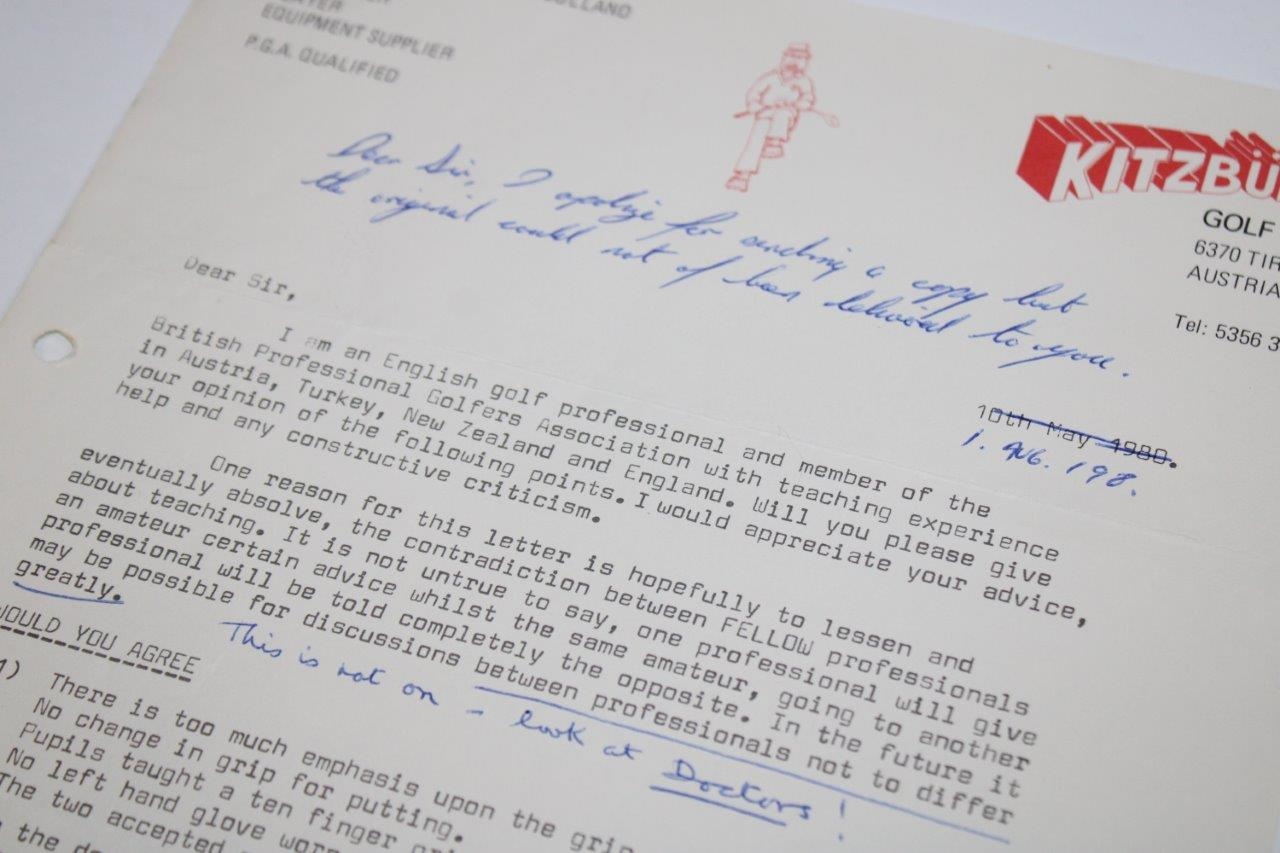 EQUIPMENT SUPPLIER
P.G.A. QUALIFIED
KITZBÜ
GOLF
6370 TIR
AUSTRIA
Tel: 5356 3
Dear Sir, I apologize for sending a copy but
the original could not of been delivered to you.
10th May 1980.
1. AUG. 198.
Dear Sir,
I am an English golf professional and member of the
British Professional Golfers Association with teaching experience
in Austria, Turkey, New Zealand and England. Will you please give
your opinion of the following points. I would appreciate your advice,
help and any constructive criticism.
One reason for this letter is hopefully to lessen and
eventually absolve, the contradiction between FELLOW professionals
about teaching. It is not untrue to say, one professional will give
an amateur certain advice whilst the same amateur, going to another
professional will be told completely the opposite. In the future it
may be possible for discussions between professionals not to differ
greatly.
This is not on - look at Doctors!
WOULD YOU AGREE
1) There is too much emphasis upon the grip
No change in grip for putting.
Pupils taught a ten finger
No left hand glove
The two accepted
the